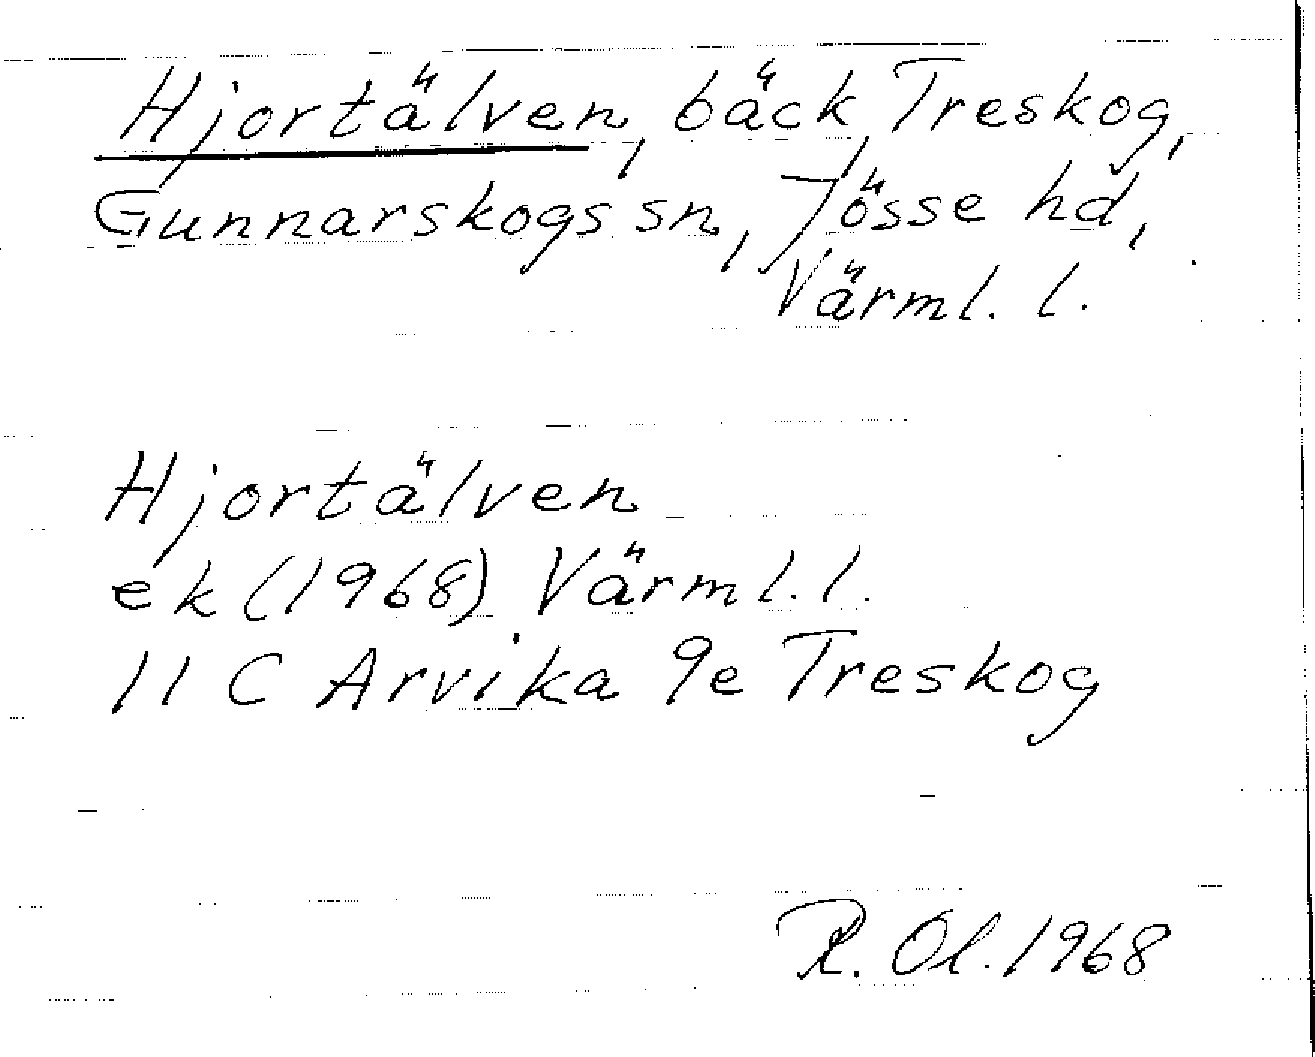 Hjortälven, bäck, Treskog,
Gunnarskogs sn, Jösse hd,
Värml. l.
Hjortälven
ek (1968) Värml. l.
11 C Arvika 9e Treskog
R. Ol. 1968